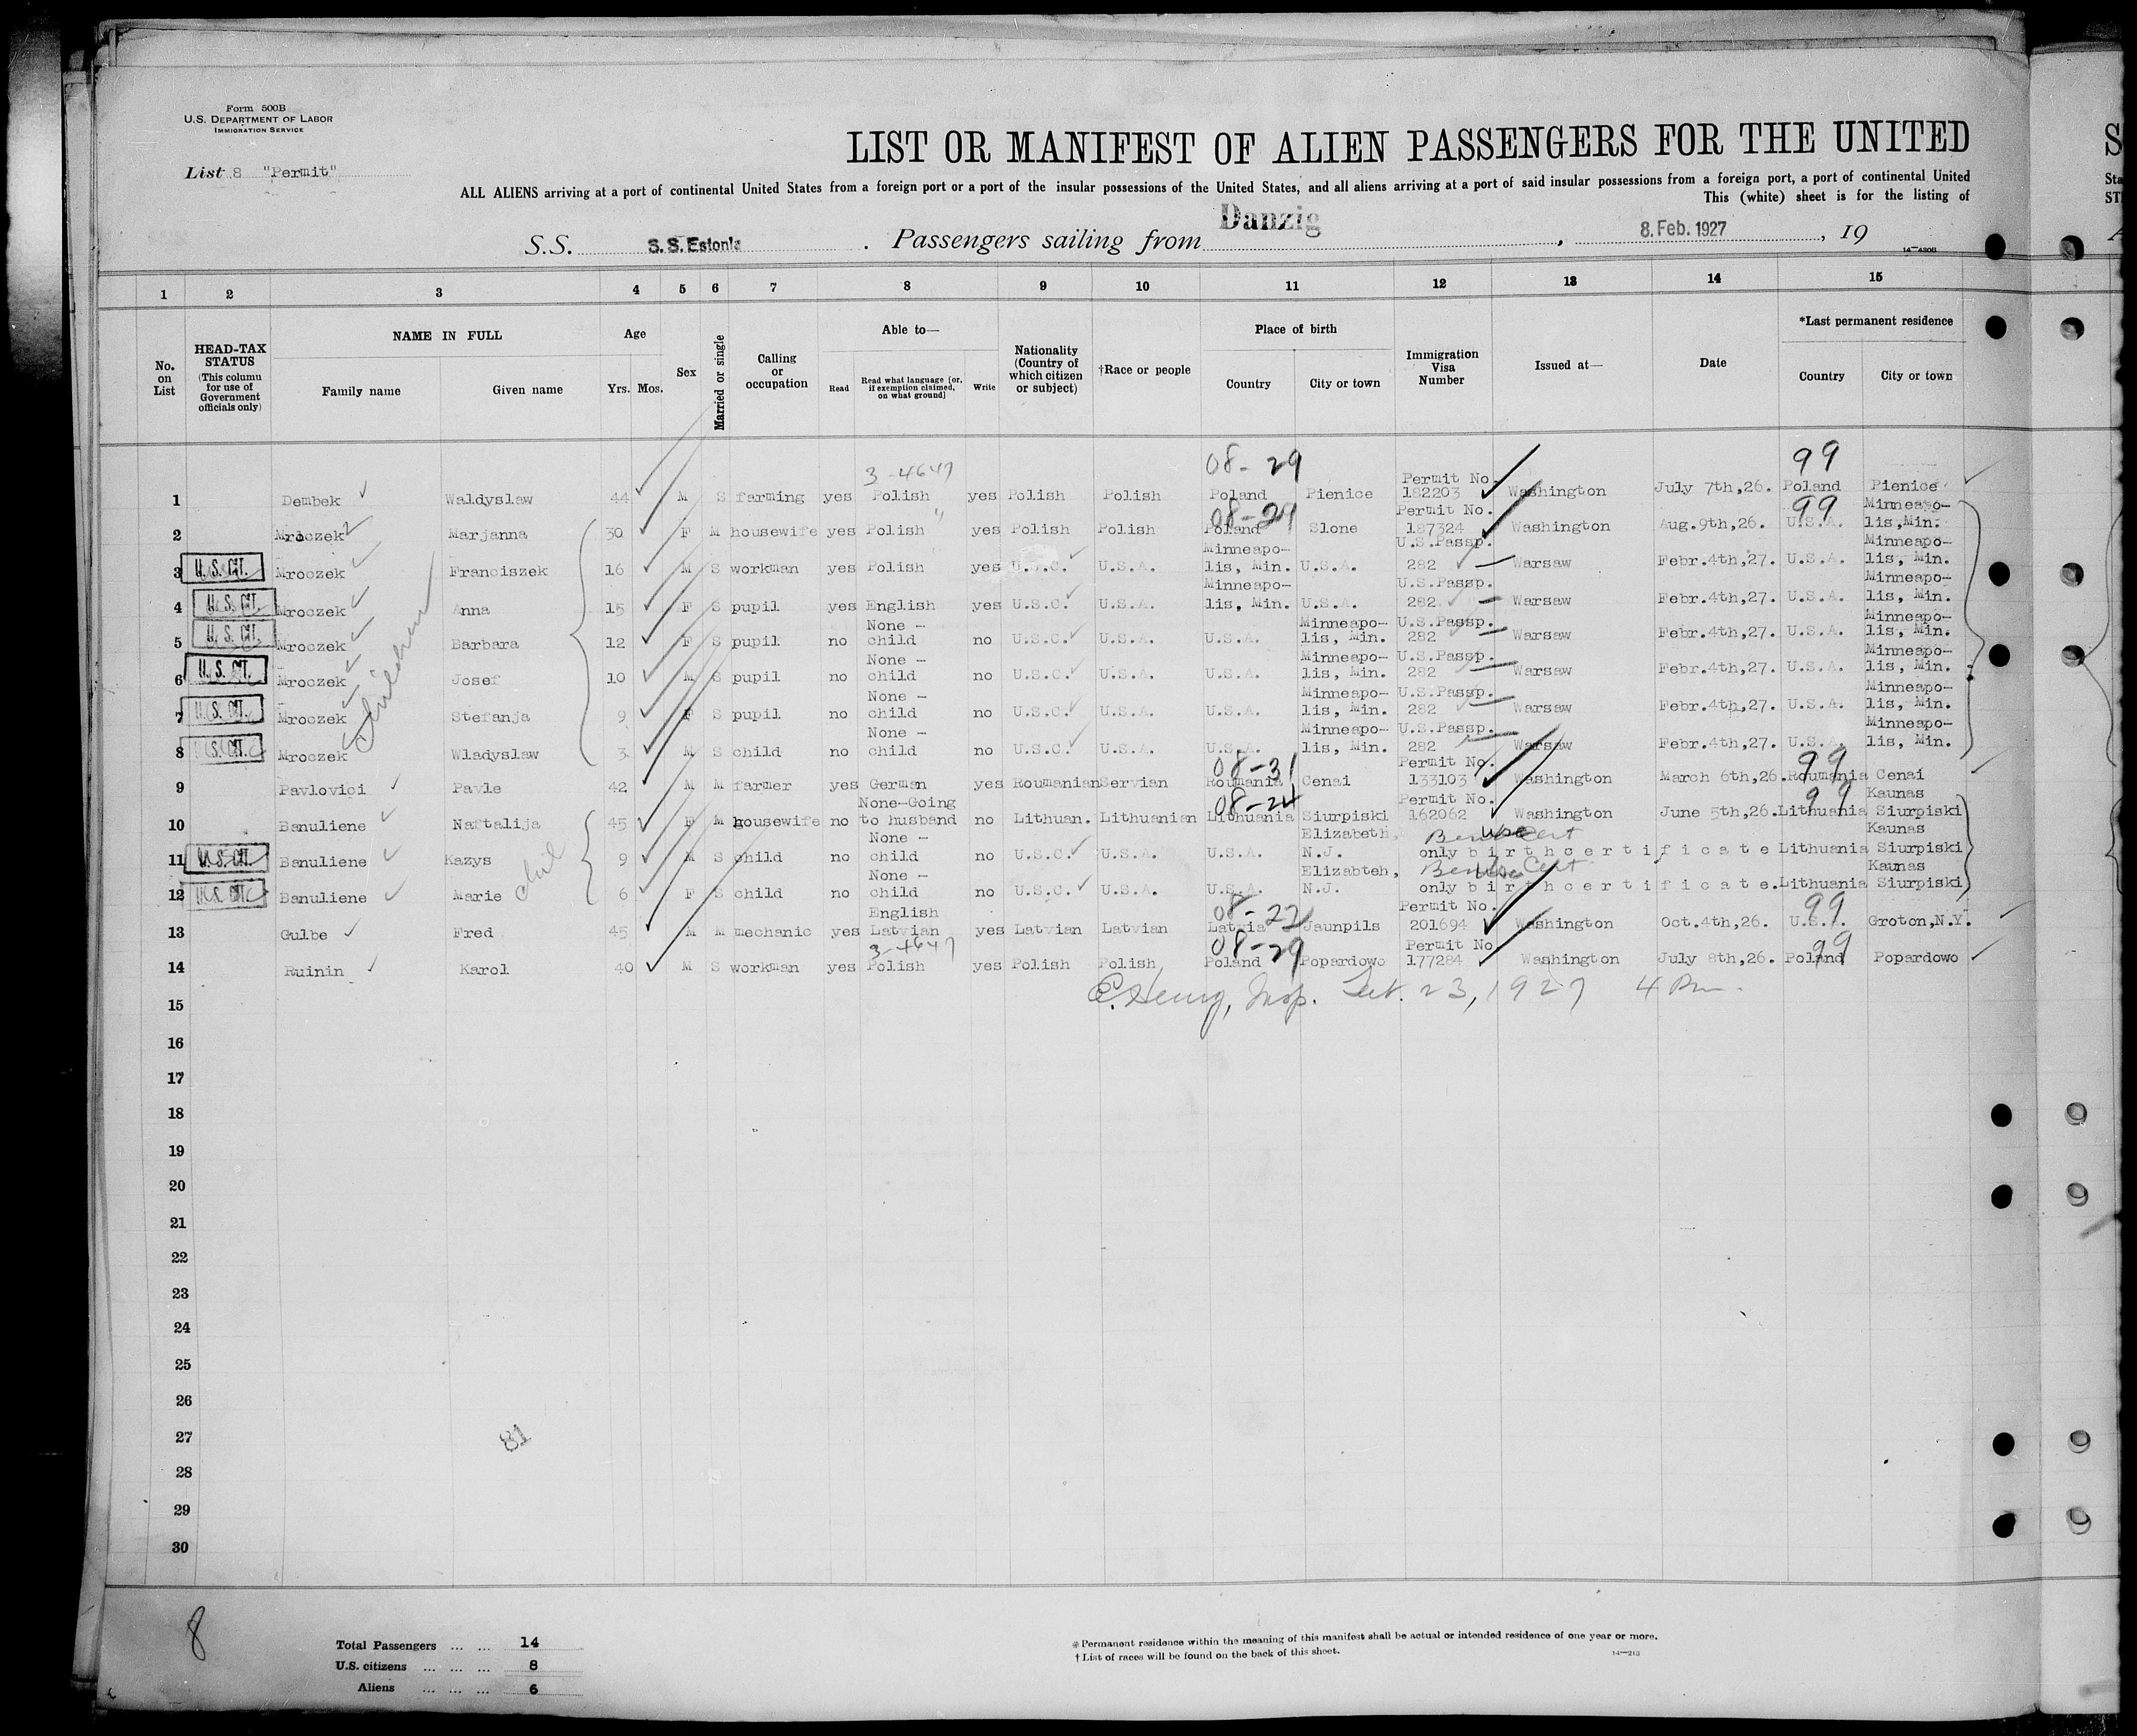 Form 500B
U.S. DEPARTMENT OF LABOR
IMMIGRATION SERVICE
List 8 "Permit"
LIST OR MANIFEST OF ALIEN PASSENGERS FOR THE UNITED
ALL ALIENS arriving at a port of continental United States from a foreign port or a port of the insular possessions of the United States, and all aliens arriving at a port of said insular possessions from a foreign port, a port of continental United
This (white) sheet is for the listing of
S.S. S. S. Estonia . Passengers sailing from Danzig , 8. Feb. 1927 , 19
14—430B
1 2 3 4 5 6 7 8 9 10 11 12 13 14 15
No. on List
HEAD-TAX STATUS (This column for use of Government officials only)
NAME IN FULL
Family name Given name
Age
Yrs. Mos.
Sex
Married or single
Calling or occupation
Able to—
Read
Read what language [or, if exemption claimed, on what ground]
Write
Nationality (Country of which citizen or subject)
†Race or people
Place of birth
Country City or town
Immigration Visa Number
Issued at—
Date
*Last permanent residence
Country City or town
3-4647 08-29 99
1 Dembek Waldyslaw 44 M S farming yes Polish yes Polish Polish Poland Pienice Permit No. 182203 Washington July 7th,26. Poland Pienice
08-29 99
2 Mroczek Marjanna 30 F M housewife yes Polish " yes Polish Polish Poland Slone Permit No. 187324 Washington Aug.9th,26. U.S.A. Minneapo-lis,Min.
3 U.S. CIT. Mroczek Franciszek 16 M S workman yes Polish yes U.S.C. U.S.A. Minneapo-lis, Min. U.S.A. U.S.Passp. 282 Warsaw Febr.4th,27. U.S.A. Minneapo-lis, Min.
4 U.S. CIT. Mroczek Anna 15 F S pupil yes English yes U.S.C. U.S.A. Minneapo-lis, Min. U.S.A. U.S.Passp. 282 Warsaw Febr.4th,27. U.S.A. Minneapo-lis, Min.
5 U.S. CIT. Mroczek Barbara 12 F S pupil no None - child no U.S.C. U.S.A. U.S.A. Minneapo-lis, Min. U.S.Passp. 282 Warsaw Febr.4th,27. U.S.A. Minneapo-lis, Min.
6 U.S. CIT. Mroczek Josef 10 M S pupil no None - child no U.S.C. U.S.A. U.S.A. Minneapo-lis, Min. U.S.Passp. 282 Warsaw Febr.4th,27. U.S.A. Minneapo-lis, Min.
7 U.S. CIT. Mroczek Stefanja 9 F S pupil no None - child no U.S.C. U.S.A. U.S.A. Minneapo-lis, Min. U.S.Passp. 282 Warsaw Febr.4th,27. U.S.A. Minneapo-lis, Min.
8 U.S. CIT. Mroczek Wladyslaw 3 M S child no None - child no U.S.C. U.S.A. U.S.A. Minneapo-lis, Min. U.S.Passp. 282 Warsaw Febr.4th,27. U.S.A. Minneapo-lis, Min.
Children
08-31 99
9 Pavlovici Pavle 42 M M farmer yes German yes Roumanian Servian Roumania Cenai Permit No. 133103 Washington March 6th,26. Roumania Cenai
08-24 99
10 Banuliene Naftalija 45 F M housewife no None-Going to husband no Lithuan. Lithuanian Lithuania Siurpiski Permit No. 162062 Washington June 5th,26. Lithuania Kaunas Siurpiski
11 U.S. CIT. Banuliene Kazys 9 M S child no None - child no U.S.C. U.S.A. U.S.A. Elizabeth, N.J. only birthcertificate Lithuania Kaunas Siurpiski
12 U.S. CIT. Banuliene Marie 6 F S child no None - child no U.S.C. U.S.A. U.S.A. Elizabteh, N.J. only birthcertificate. Lithuania Kaunas Siurpiski
Chil
08-22 99
13 Gulbe Fred 45 M M mechanic yes English Latvian yes Latvian Latvian Latvia Jaunpils Permit No. 201694 Washington Oct.4th,26. U.S.A. Groton,N.Y.
3-4647 08-29 99
14 Ruinin Karol 40 M S workman yes Polish yes Polish Polish Poland Popardowo Permit No 177284 Washington July 8th,26. Poland Popardowo
Insp. 23, 1927 4 Pm.
15
16
17
18
19
20
21
22
23
24
25
26
27
81
28
29
30
8
Total Passengers ... ... 14
U.S. citizens ... ... ... 8
Aliens ... ... ... 6
*Permanent residence within the meaning of this manifest shall be actual or intended residence of one year or more.
†List of races will be found on the back of this sheet.
14—213